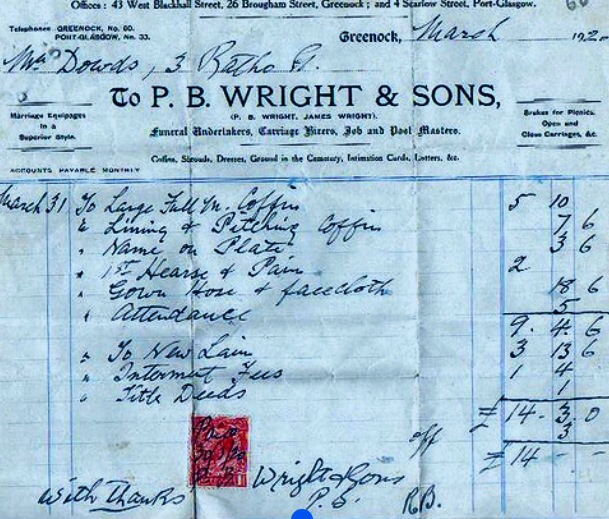 Offices: 43 West Blackhall Street, 26 Brougham Street, Greenock; and 4 Scarlow Street, Port-Glasgow.
Telephones GREENOCK, No. 60.
PORT-GLASGOW, No. 33.
Greenock, March 192
Mrs Dowds, 3 Ratho St.
To P. B. WRIGHT & SONS,
(P. B. WRIGHT. JAMES WRIGHT).
Marriage Equipages
in a
Superior Style.
Brakes for Picnics.
Open and
Close Carriages, &c.
Funeral Undertakers, Carriage Hirers, Job and Post Masters.
Coffins, Shrouds, Dresses, Ground in the Cemetery, Intimation Cards, Letters, &c.
ACCOUNTS PAYABLE MONTHLY
March 31 To Large Full M. Coffin 5 10
" Lining & Pitching Coffin 7 6
" Name on Plate 3 6
" 1st Hearse & Pair 2
" Gown Hose & facecloth 18 6
" Attendance 5
9. 4. 6
" To New Lair 3 13 6
" Interment Fees 1 4
" Title Deeds 1
£ 14. 3. 0
off 3
£ 14 - -
Paid
Wright & Sons
With Thanks
P. S. R.B.